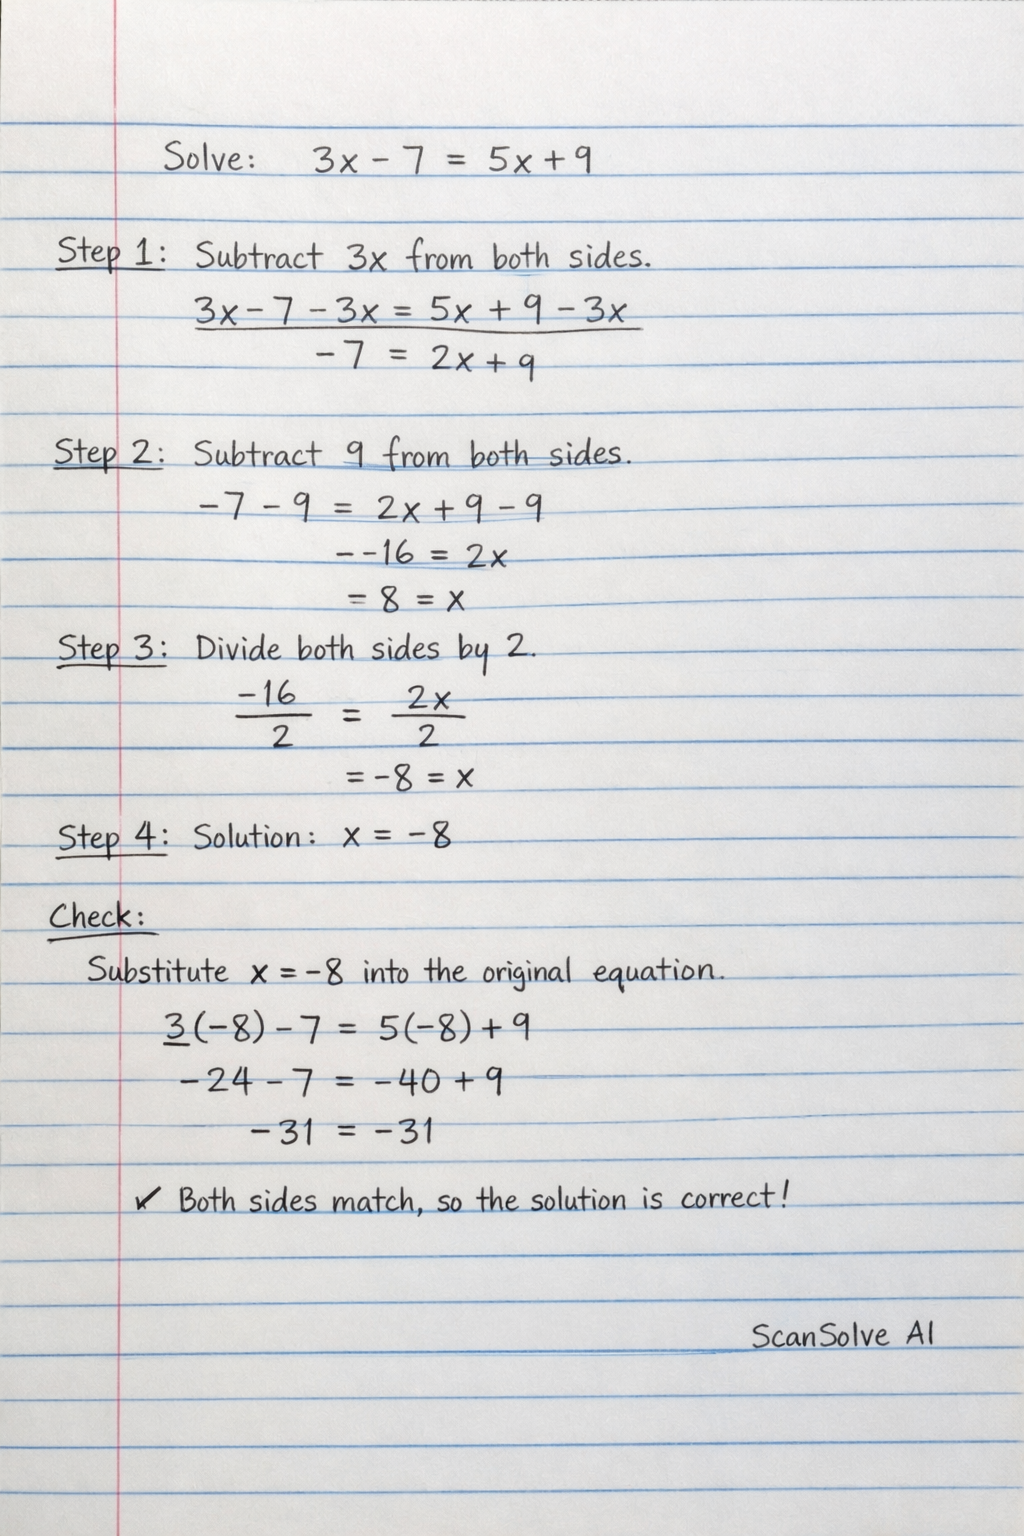 Solve: 3x - 7 = 5x + 9
Step 1: Subtract 3x from both sides.
3x - 7 - 3x = 5x + 9 - 3x
-7 = 2x + 9
Step 2: Subtract 9 from both sides.
-7 - 9 = 2x + 9 - 9
--16 = 2x
= 8 = x
Step 3: Divide both sides by 2.
-16/2 = 2x/2
= -8 = x
Step 4: Solution: x = -8
Check:
Substitute x = -8 into the original equation.
3(-8) - 7 = 5(-8) + 9
-24 - 7 = -40 + 9
-31 = -31
✓ Both sides match, so the solution is correct!
ScanSolve AI